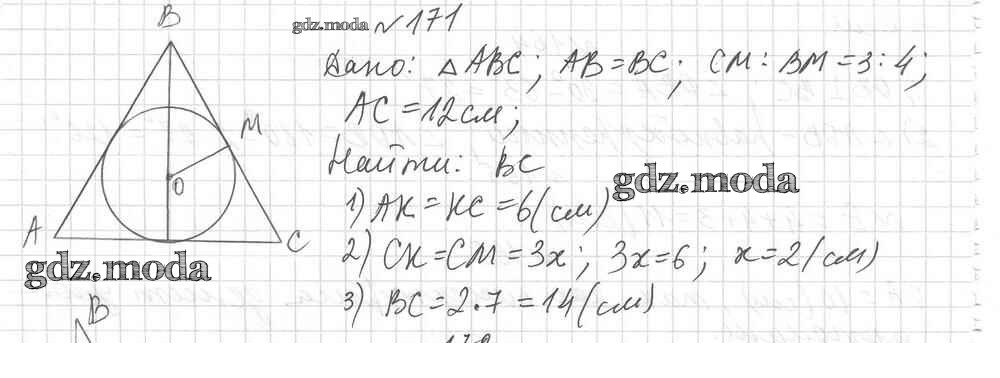 gdz.moda № 171
B
Дано: △ABC; AB = BC; CM : BM = 3 : 4;
AC = 12 см;
M
Найти: BC
gdz.moda
O
1) AK = KC = 6 (см)
A
C
2) CK = CM = 3x; 3x = 6; x = 2 (см)
gdz.moda
3) BC = 2 · 7 = 14 (см)
B